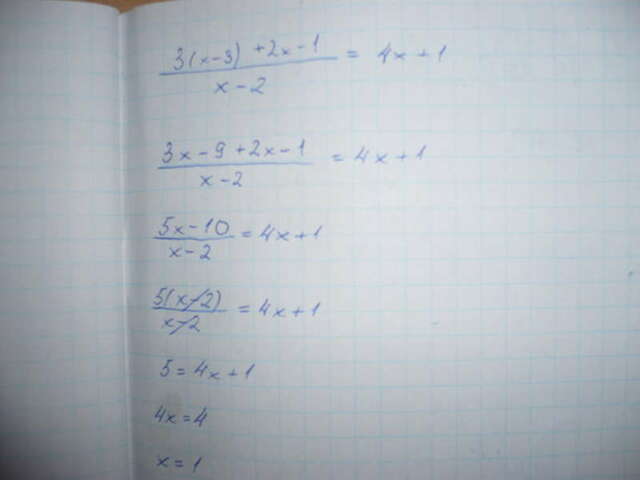 3(x-3) +2x-1 / x-2 = 4x+1
3x-9+2x-1 / x-2 = 4x+1
5x-10 / x-2 = 4x+1
5(x-2) / x-2 = 4x+1
5=4x+1
4x=4
x=1